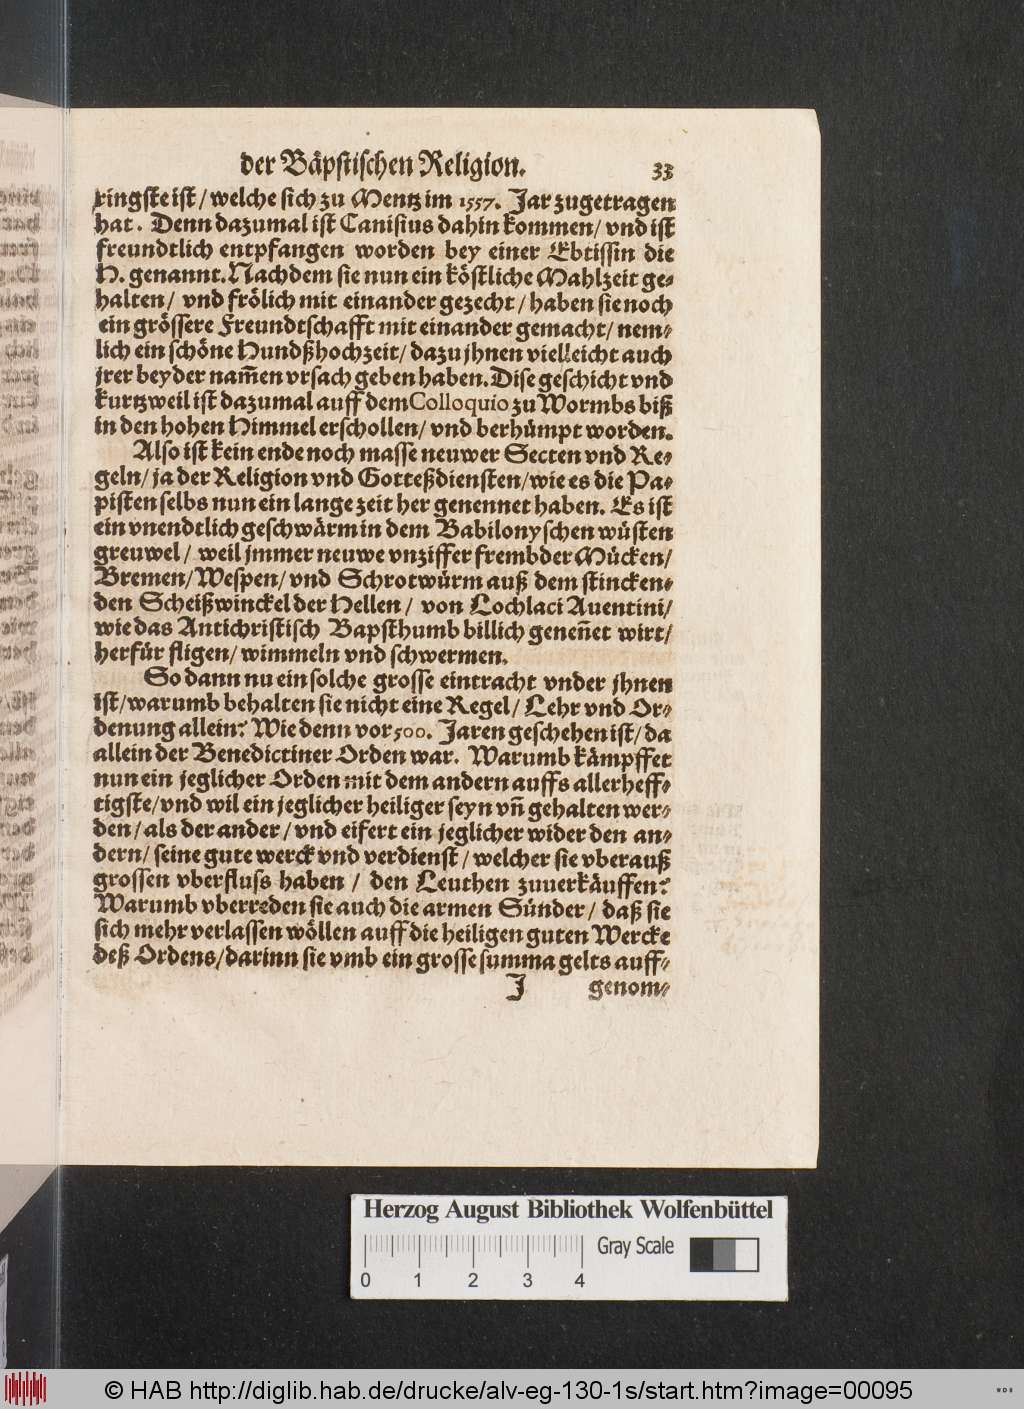 der Bäpstischen Religion. 33
ringste ist / welche sich zu Mentz im 1557. Jar zugetragen
hat. Denn dazumal ist Canisius dahin kommen / vnd ist
freundtlich entpfangen worden bey einer Ebtissin die
H. genannt. Nachdem sie nun ein köstliche Mahlzeit ge-
halten / vnd frölich mit einander gezecht / haben sie noch
ein grössere Freundtschafft mit einander gemacht / nem-
lich ein schöne Hundßhochzeit / dazu jhnen villeicht auch
jrer beyder nam̃en vrsach geben haben. Dise geschicht vnd
kurtzweil ist dazumal auff dem Colloquio zu Wormbs biß
in den hohen Himmel erschollen / vnd berhümpt worden.
Also ist kein ende noch masse neuwer Secten vnd Re-
geln / ja der Religion vnd Gotteßdiensten / wie es die Pa-
pisten selbs nun ein lange zeit her genennet haben. Es ist
ein vnendtlich geschwärm in dem Babilonyschen wüsten
greuwel / weil jmmer neuwe vnziffer frembder Mücken /
Bremen / Wespen / vnd Schrotwürm auß dem stincken-
den Scheißwinckel der Hellen / von Lochlaci Auentini /
wie das Antichristisch Bapsthumb billich geneñet wirt /
herfür fligen / wimmeln vnd schwermen.
So dann nu ein solche grosse eintracht vnder jhnen
ist / warumb behalten sie nicht eine Regel / Lehr vnd Or-
denung allein? Wie denn vor 500. Jaren geschehen ist / da
allein der Benedictiner Orden war. Warumb kämpffet
nun ein jeglicher Orden mit dem andern auffs allerheff-
tigste / vnd wil ein jeglicher heiliger seyn vñ gehalten wer-
den / als der ander / vnd eifert ein jeglicher wider den an-
dern / seine gute werck vnd verdienst / welcher sie vberauß
grossen vberfluss haben / den Leuthen zuuerkäuffen?
Warumb vberreden sie auch die armen Sünder / daß sie
sich mehr verlassen wöllen auff die heiligen guten Wercke
deß Ordens / darinn sie vmb ein grosse summa gelts auff-
J genom-
Herzog August Bibliothek Wolfenbüttel
0 1 2 3 4 Gray Scale
© HAB http://diglib.hab.de/drucke/alv-eg-130-1s/start.htm?image=00095